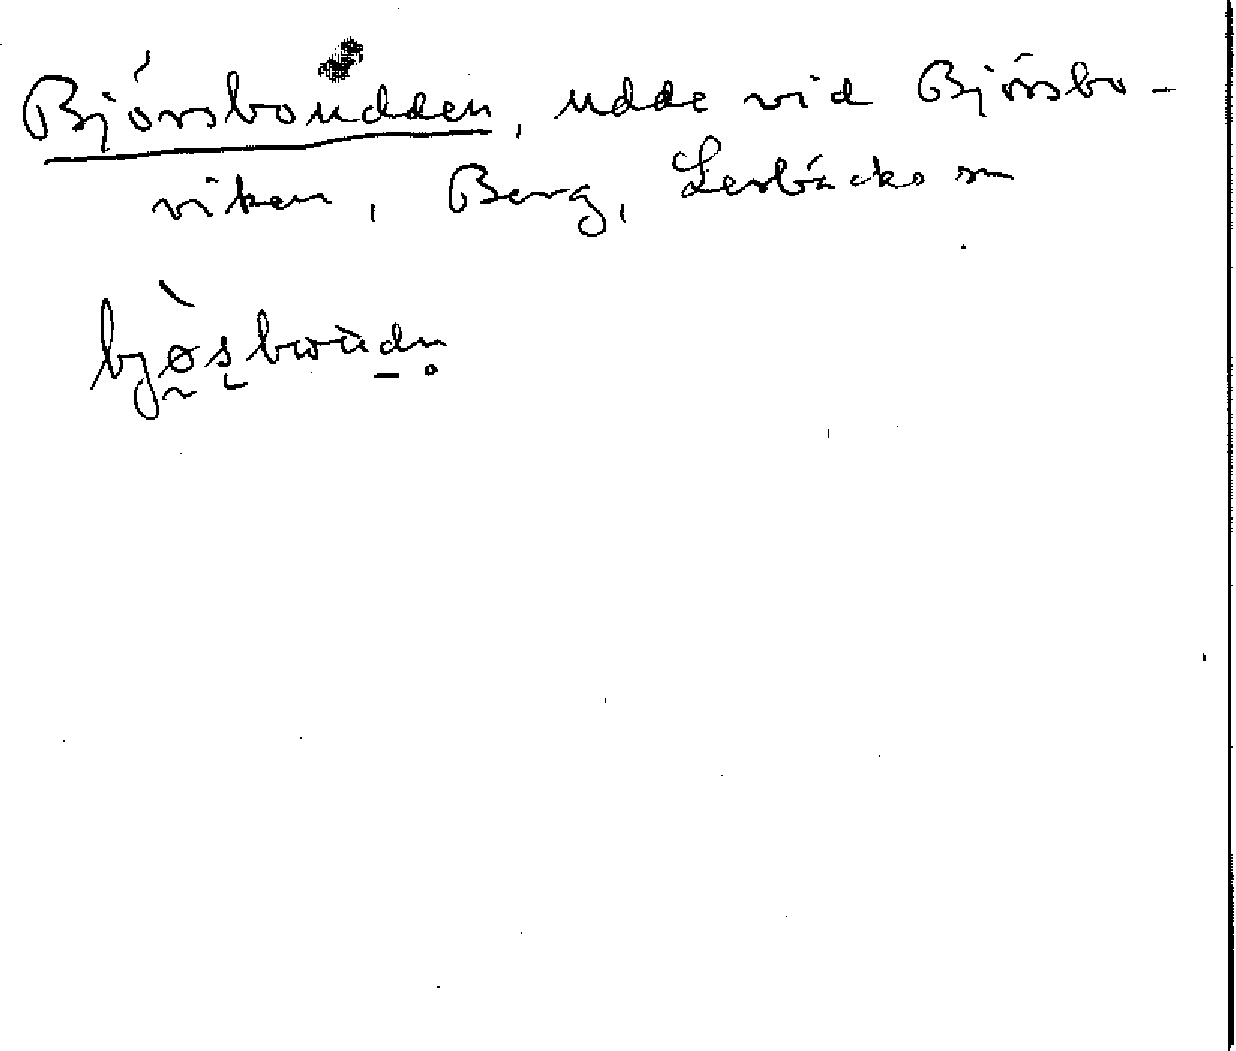 Björsboudden, udde vid Björsbo-
viken, Berg, Lerbäcks sn